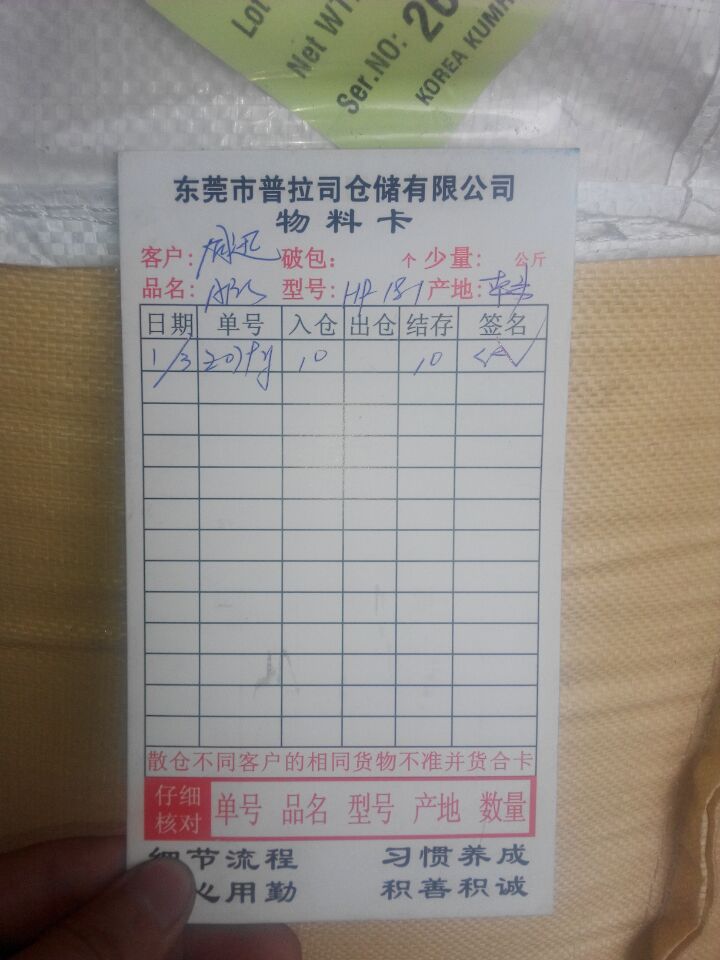 Lot
Net WT.
Ser.NO: 20
KOREA KUMH
东莞市普拉司仓储有限公司
物料卡
客户: 破包: 个 少量: 公斤
品名: ABS 型号: HP 181 产地:
日期 单号 入仓 出仓 结存 签名
1/3 10 10
散仓不同客户的相同货物不准并货合卡
仔细核对 单号 品名 型号 产地 数量
细节流程 习惯养成
心用勤 积善积诚